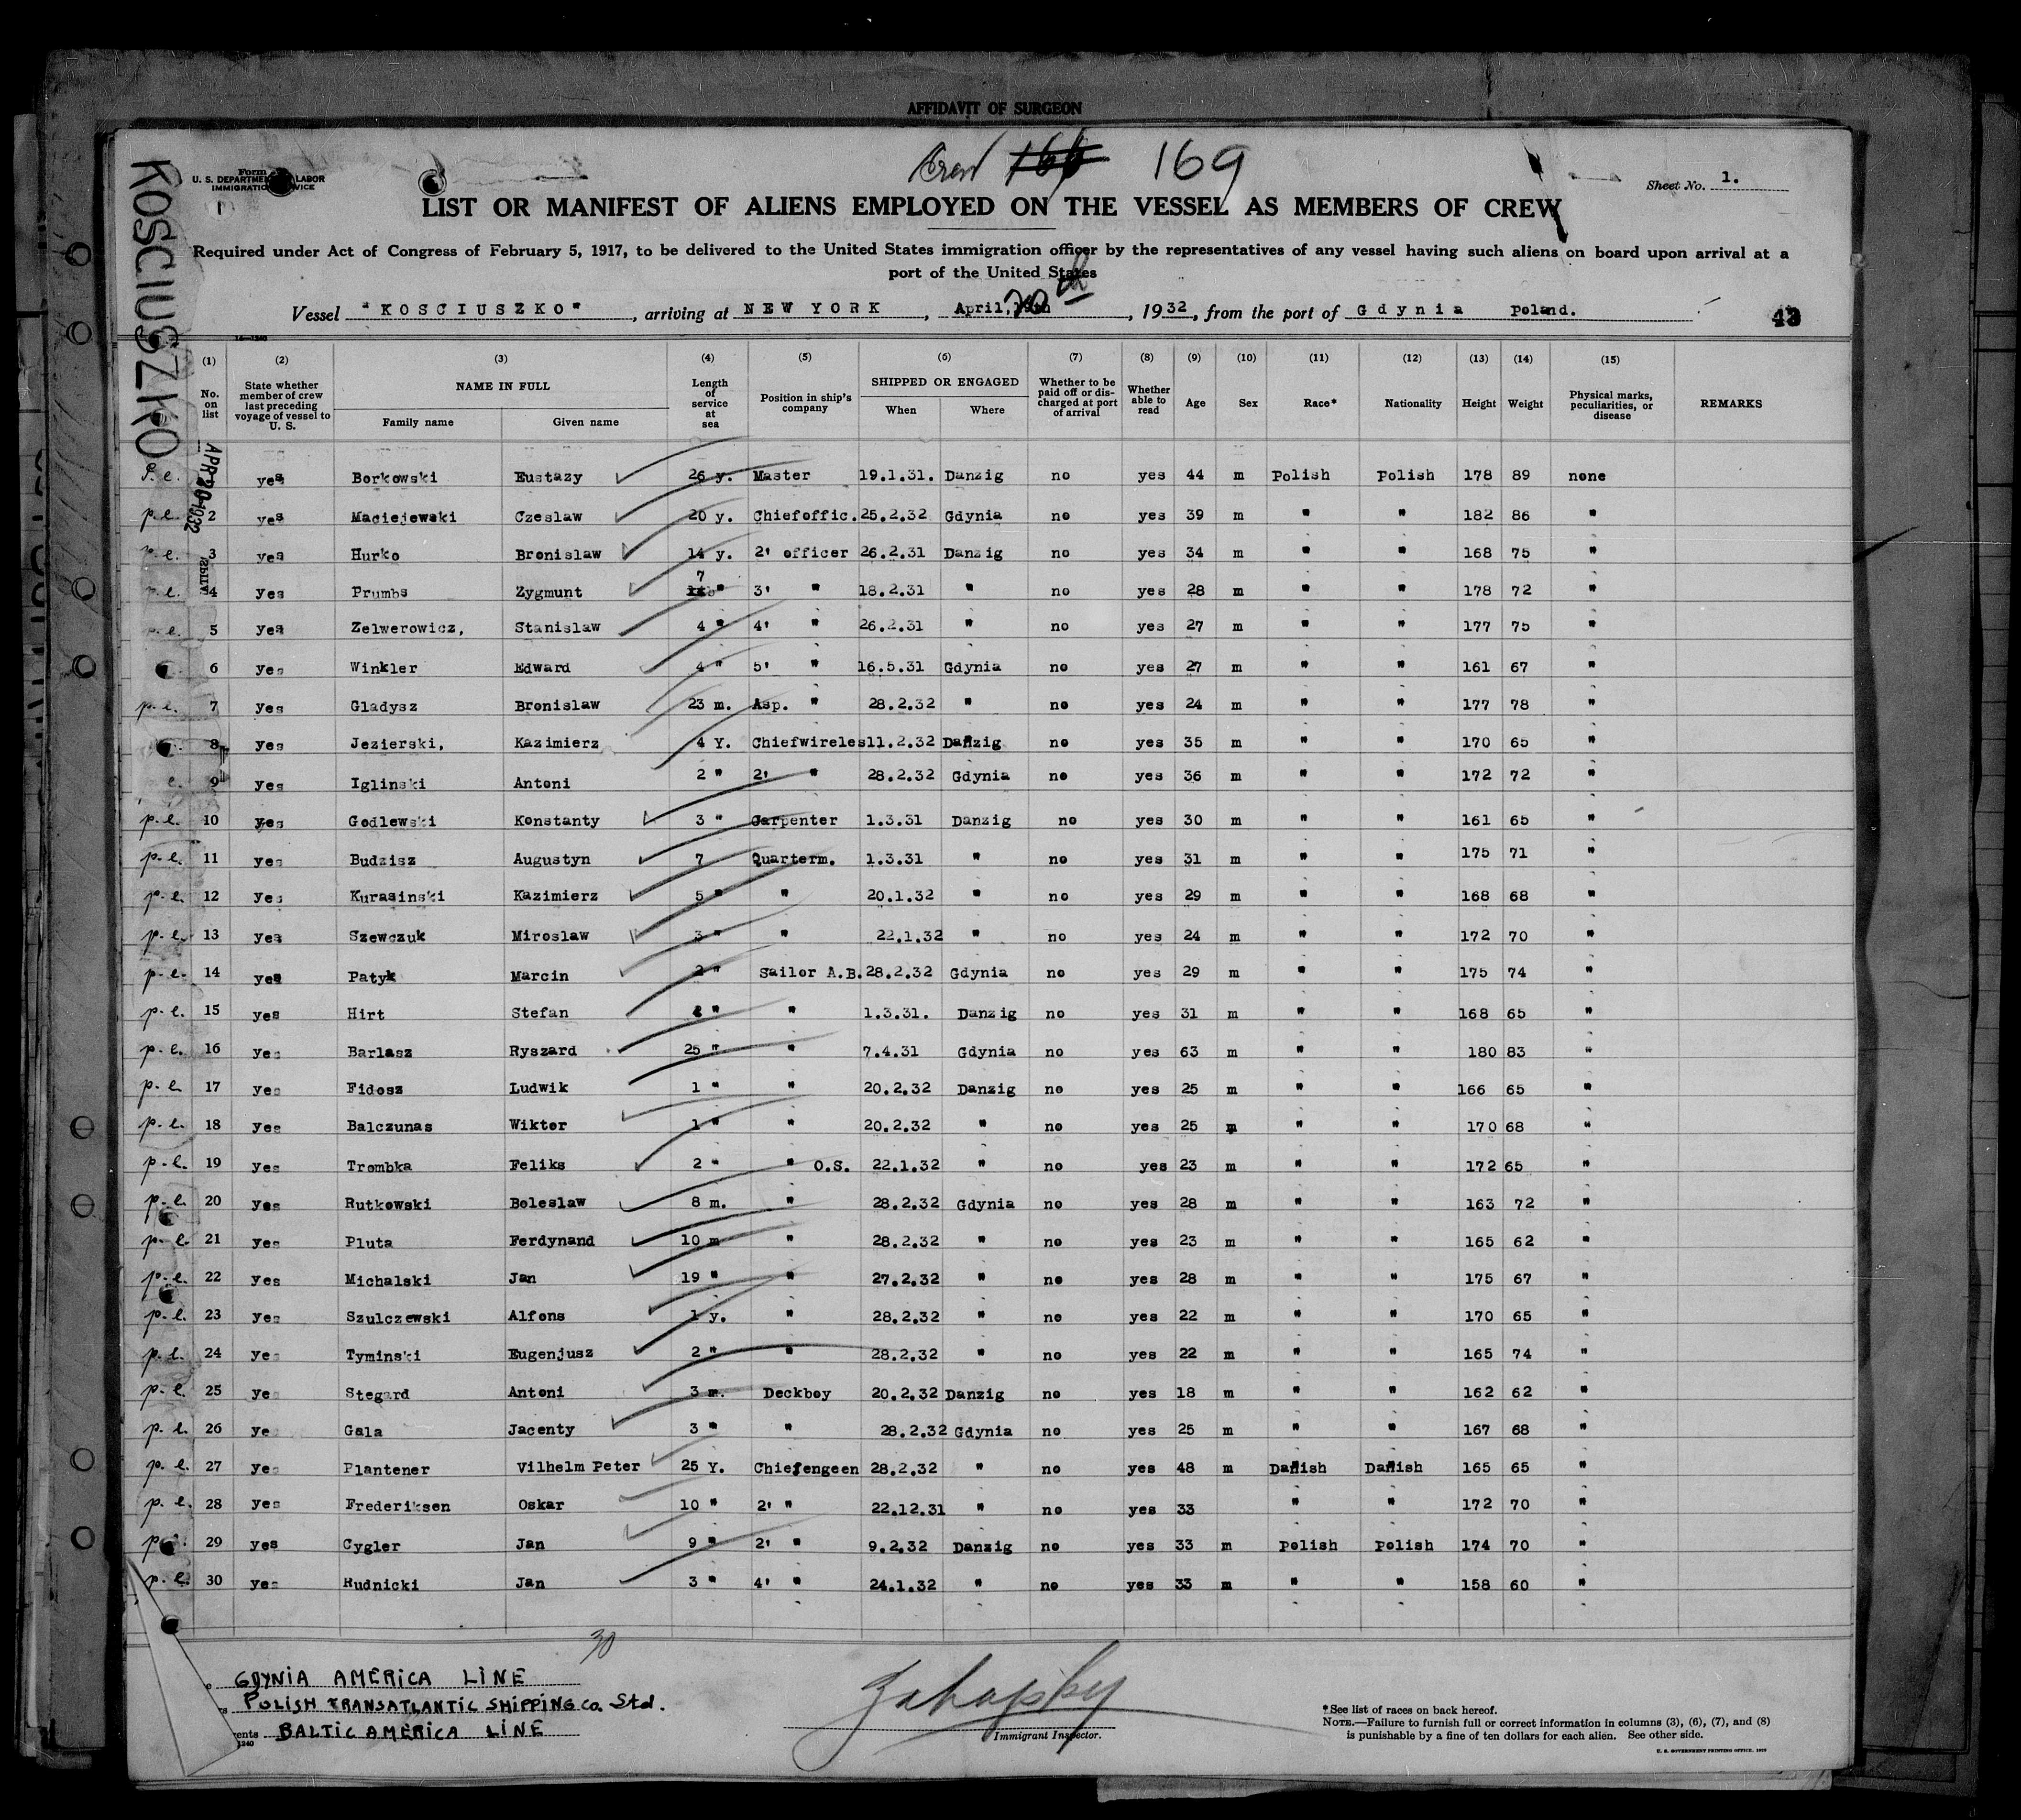 AFFIDAVIT OF SURGEON
Crew 166 169
Form
U. S. DEPARTMENT LABOR
IMMIGRATION
Sheet No. 1.
KOSCIUSZKO
LIST OR MANIFEST OF ALIENS EMPLOYED ON THE VESSEL AS MEMBERS OF CREW
Required under Act of Congress of February 5, 1917, to be delivered to the United States immigration officer by the representatives of any vessel having such aliens on board upon arrival at a
port of the United States
Vessel "KOSCIUSZKO", arriving at NEW YORK, April, 20th, 1932, from the port of Gdynia Poland. 43
(1) (2) (3) (4) (5) (6) (7) (8) (9) (10) (11) (12) (13) (14) (15)
No. on list State whether member of crew last preceding voyage of vessel to U. S. NAME IN FULL Family name Given name Length of service at sea Position in ship's company SHIPPED OR ENGAGED When Where Whether to be paid off or discharged at port of arrival Whether able to read Age Sex Race* Nationality Height Weight Physical marks, peculiarities, or disease REMARKS
APR 20 1932
P. e. yes Borkowski Eustazy 26 y. Master 19.1.31. Danzig no yes 44 m Polish Polish 178 89 none
p.e. 2 yes Maciejewski Czeslaw 20 y. Chiefoffic. 25.2.32 Gdynia no yes 39 m " " 182 86 "
p.e. 3 yes Hurko Bronislaw 14 y. 2' officer 26.2.31 Danzig no yes 34 m " " 168 75 "
p.e. 4 yes Prumbs Zygmunt 7 " 3' " 18.2.31 " no yes 28 m " " 178 72 "
p.e. 5 yes Zelwerowicz, Stanislaw 4 " 4' " 26.2.31 " no yes 27 m " " 177 75 "
6 yes Winkler Edward 4 " 5' " 16.5.31 Gdynia no yes 27 m " " 161 67 "
p.e. 7 yes Gladysz Bronislaw 23 m. Asp. " 28.2.32 " no yes 24 m " " 177 78 "
8 yes Jezierski, Kazimierz 4 Y. Chiefwireles 11.2.32 Danzig no yes 35 m " " 170 65 "
e. 9 yes Iglinski Antoni 2 " 2' " 28.2.32 Gdynia no yes 36 m " " 172 72 "
p.e. 10 yes Godlewski Konstanty 3 " Carpenter 1.3.31 Danzig no yes 30 m " " 161 65 "
p.e. 11 yes Budzisz Augustyn 7 Quarterm. 1.3.31 " no yes 31 m " " 175 71 "
p.e. 12 yes Kurasinski Kazimierz 5 " " 20.1.32 " no yes 29 m " " 168 68 "
p.e. 13 yes Szewczuk Miroslaw 3 " " 22.1.32 " no yes 24 m " " 172 70 "
p.e. 14 yes Patyk Marcin 2 " Sailor A.B. 28.2.32 Gdynia no yes 29 m " " 175 74 "
p.e. 15 yes Hirt Stefan " " 1.3.31. Danzig no yes 31 m " " 168 65 "
p.e. 16 yes Barlasz Ryszard 25 " " 7.4.31 Gdynia no yes 63 m " " 180 83 "
p.e 17 yes Fidosz Ludwik 1 " " 20.2.32 Danzig no yes 25 m " " 166 65 "
p.e. 18 yes Balczunas Wiktor 1 " " 20.2.32 " no yes 25 m " " 170 68 "
p.e. 19 yes Trombka Feliks 2 " " O.S. 22.1.32 " no yes 23 m " " 172 65 "
p.e. 20 yes Rutkowski Boleslaw 8 m. " 28.2.32 Gdynia no yes 28 m " " 163 72 "
p.e. 21 yes Pluta Ferdynand 10 m " 28.2.32 " no yes 23 m " " 165 62 "
p.e. 22 yes Michalski Jan 19 " " 27.2.32 " no yes 28 m " " 175 67 "
p.e. 23 yes Szulczewski Alfons 1 y. " 28.2.32 " no yes 22 m " " 170 65 "
p.e. 24 yes Tyminski Eugenjusz 2 " " 28.2.32 " no yes 22 m " " 165 74 "
p.e. 25 yes Stegard Antoni 3 m. Deckboy 20.2.32 Danzig no yes 18 m " " 162 62 "
p.e. 26 yes Gala Jacenty 3 " " 28.2.32 Gdynia no yes 25 m " " 167 68 "
p.e. 27 yes Plantener Vilhelm Peter 25 Y. Chiefengeen 28.2.32 " no yes 48 m Danish Danish 165 65 "
p.e. 28 yes Frederiksen Oskar 10 " 2' " 22.12.31 " no yes 33 " " 172 70 "
p.e. 29 yes Cygler Jan 9 " 2' " 9.2.32 Danzig no yes 33 m Polish Polish 174 70 "
p.e. 30 yes Rudnicki Jan 3 " 4' " 24.1.32 " no yes 33 m " " 158 60 "
30
GDYNIA AMERICA LINE
POLISH TRANSATLANTIC SHIPPING Co. Ltd.
BALTIC AMERICA LINE
Immigrant Inspector.
*See list of races on back hereof.
NOTE.—Failure to furnish full or correct information in columns (3), (6), (7), and (8)
is punishable by a fine of ten dollars for each alien. See other side.
U. S. GOVERNMENT PRINTING OFFICE